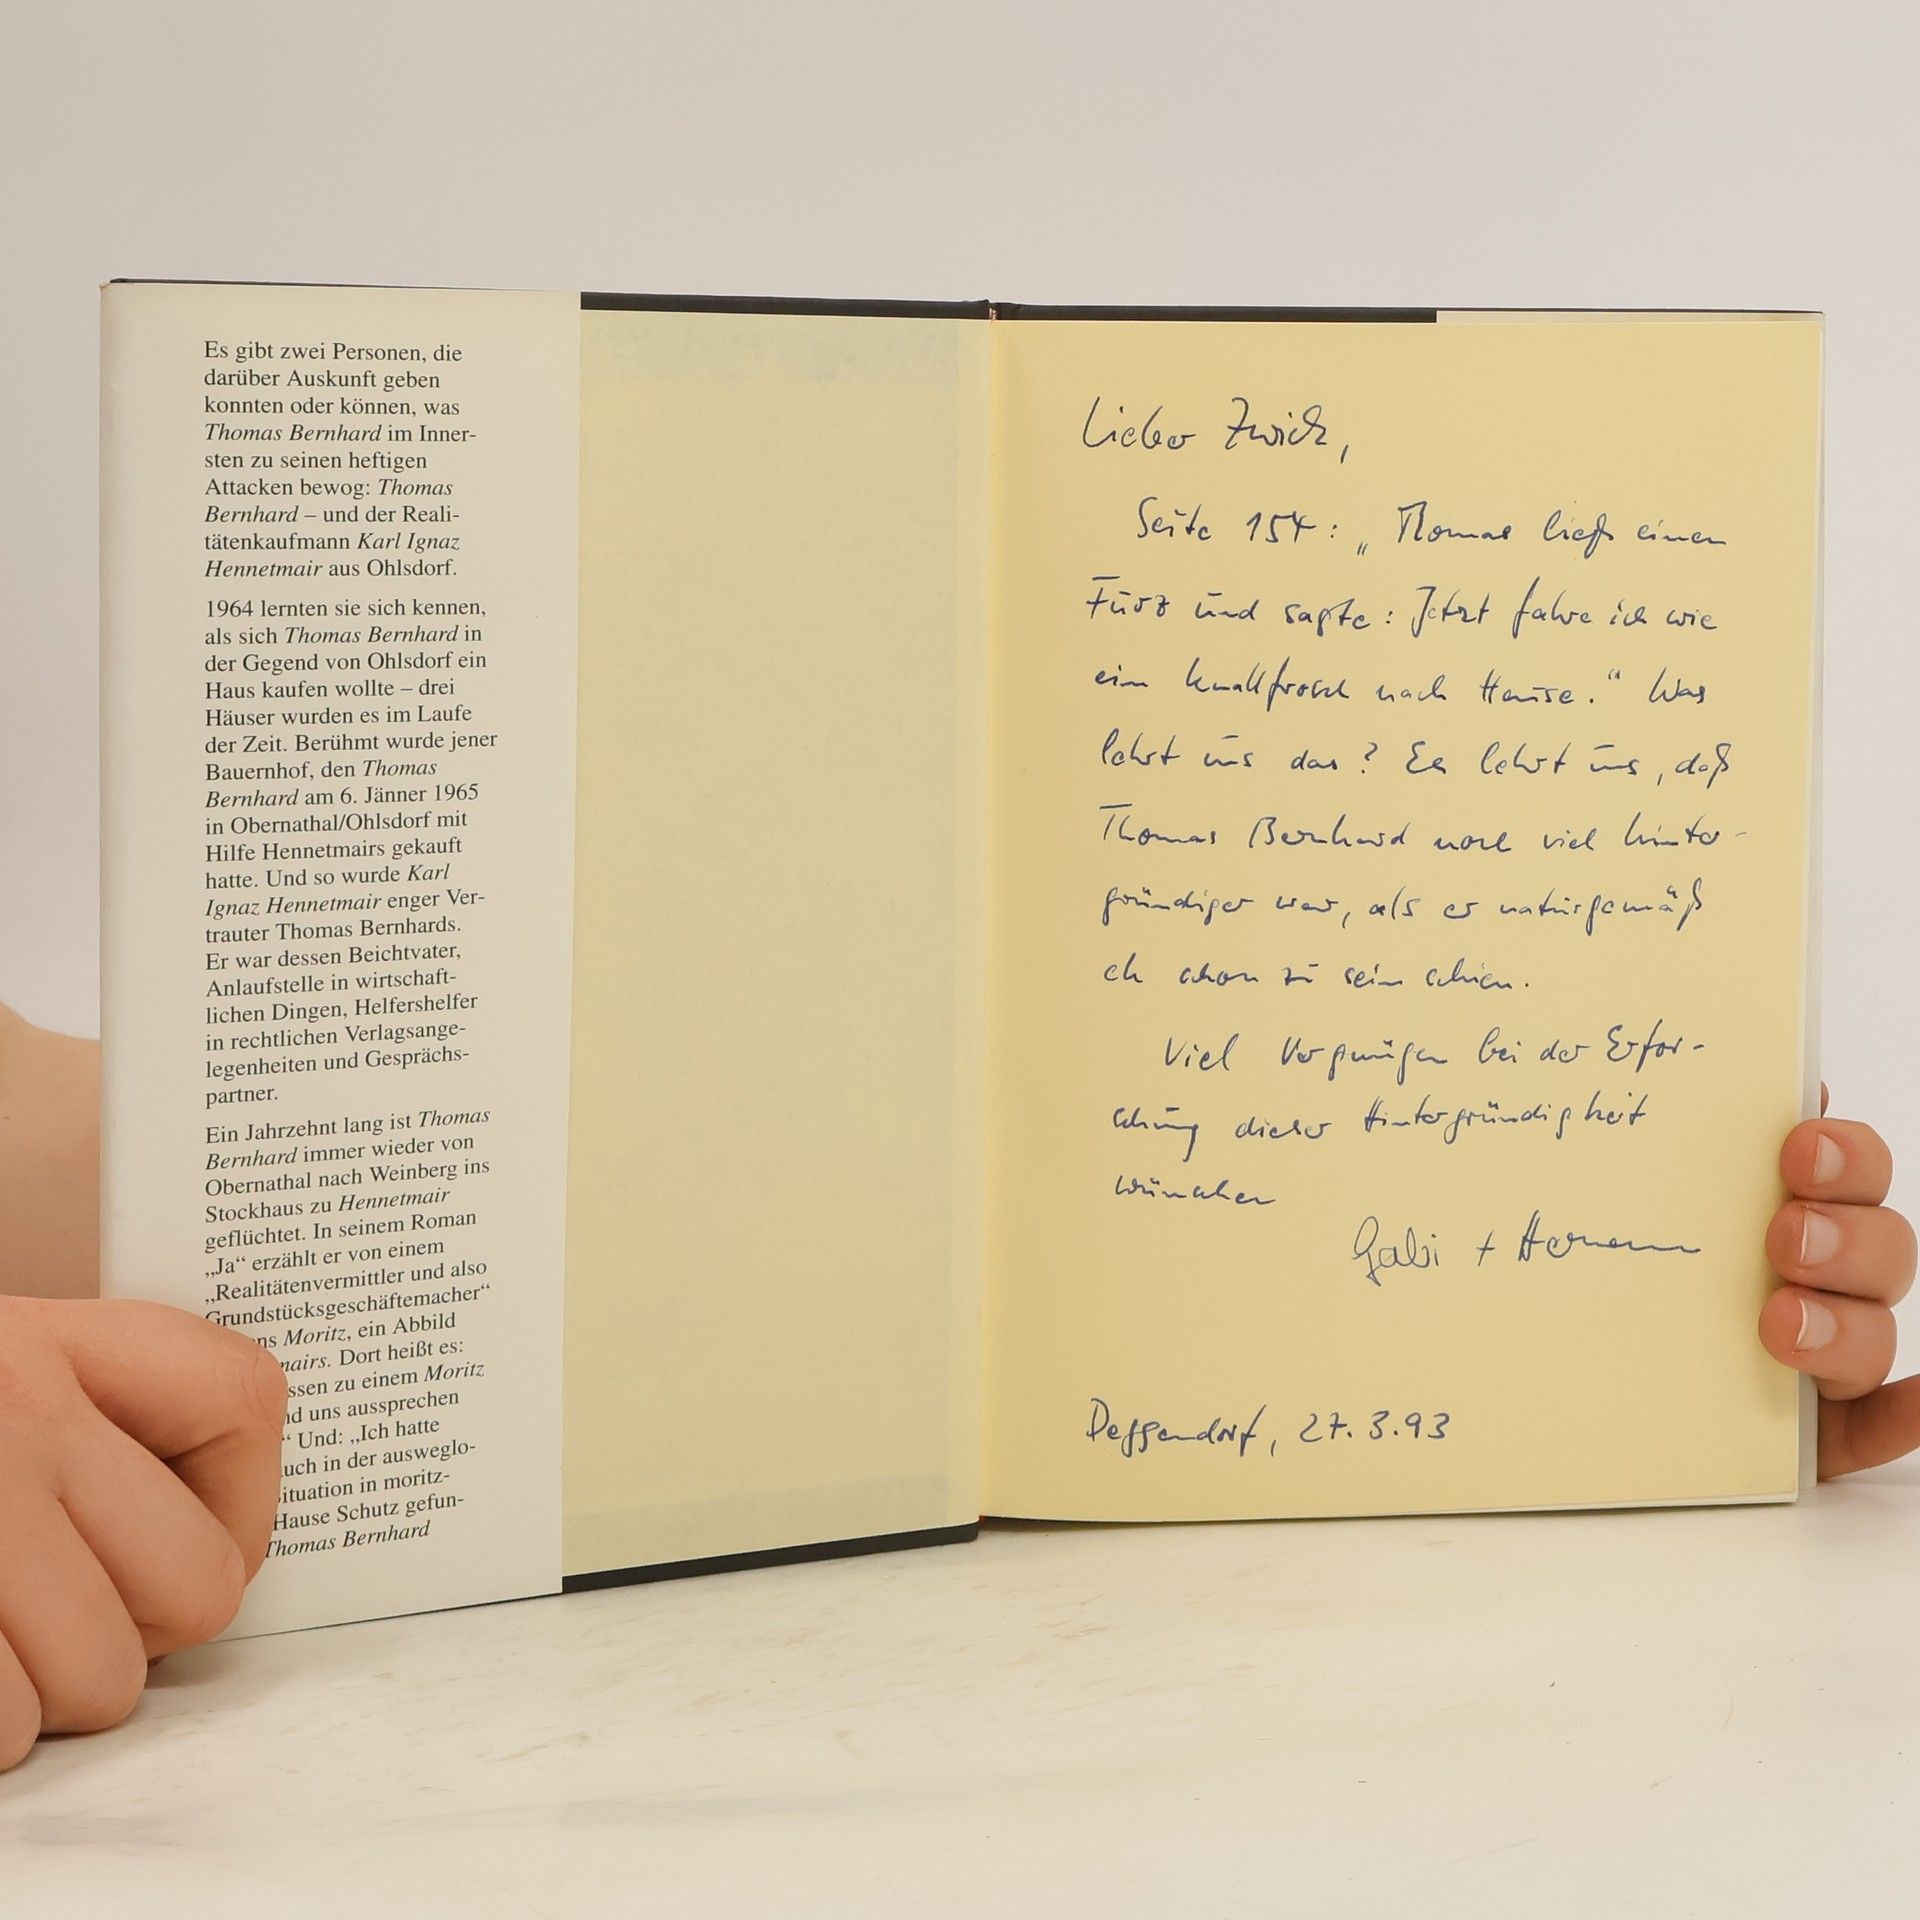 Es gibt zwei Personen, die
darüber Auskunft geben
konnten oder können, was
Thomas Bernhard im Inner-
sten zu seinen heftigen
Attacken bewog: Thomas
Bernhard – und der Reali-
tätenkaufmann Karl Ignaz
Hennetmair aus Ohlsdorf.
1964 lernten sie sich kennen,
als sich Thomas Bernhard in
der Gegend von Ohlsdorf ein
Haus kaufen wollte – drei
Häuser wurden es im Laufe
der Zeit. Berühmt wurde jener
Bauernhof, den Thomas
Bernhard am 6. Jänner 1965
in Obernathal/Ohlsdorf mit
Hilfe Hennetmairs gekauft
hatte. Und so wurde Karl
Ignaz Hennetmair enger Ver-
trauter Thomas Bernhards.
Er war dessen Beichtvater,
Anlaufstelle in wirtschaft-
lichen Dingen, Helfershelfer
in rechtlichen Verlagsange-
legenheiten und Gesprächs-
partner.
Ein Jahrzehnt lang ist Thomas
Bernhard immer wieder von
Obernathal nach Weinberg ins
Stockhaus zu Hennetmair
geflüchtet. In seinem Roman
„Ja“ erzählt er von einem
„Realitätenvermittler und also
Grundstücksgeschäftemacher“
ns Moritz, ein Abbild
mairs. Dort heißt es:
ssen zu einem Moritz
nd uns aussprechen
“ Und: „Ich hatte
uch in der ausweglo-
ituation in moritz-
Hause Schutz gefun-
Thomas Bernhard
Lieber Zwick,
Seite 154: „Thomas ließ einen
Furz und sagte: Jetzt fahre ich wie
ein Knallfrosch nach Hause.“ Was
lehrt uns das? Es lehrt uns, daß
Thomas Bernhard noch viel hinter-
gründiger war, als er naturgemäß
eh schon zu sein schien.
Viel Vergnügen bei der Erfor-
schung dieser Hintergründigkeit
wünschen
Gabi + Hermann
Deggendorf, 27.3.93